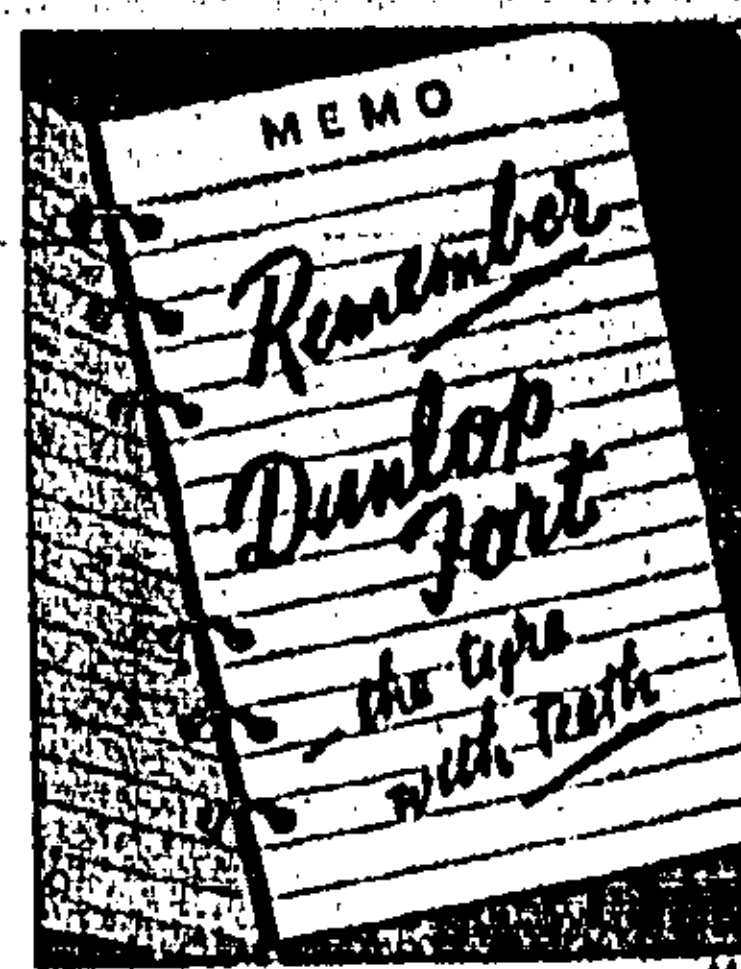 MEMO
Remember
Dunlop
Fort
— the tyre
with teeth